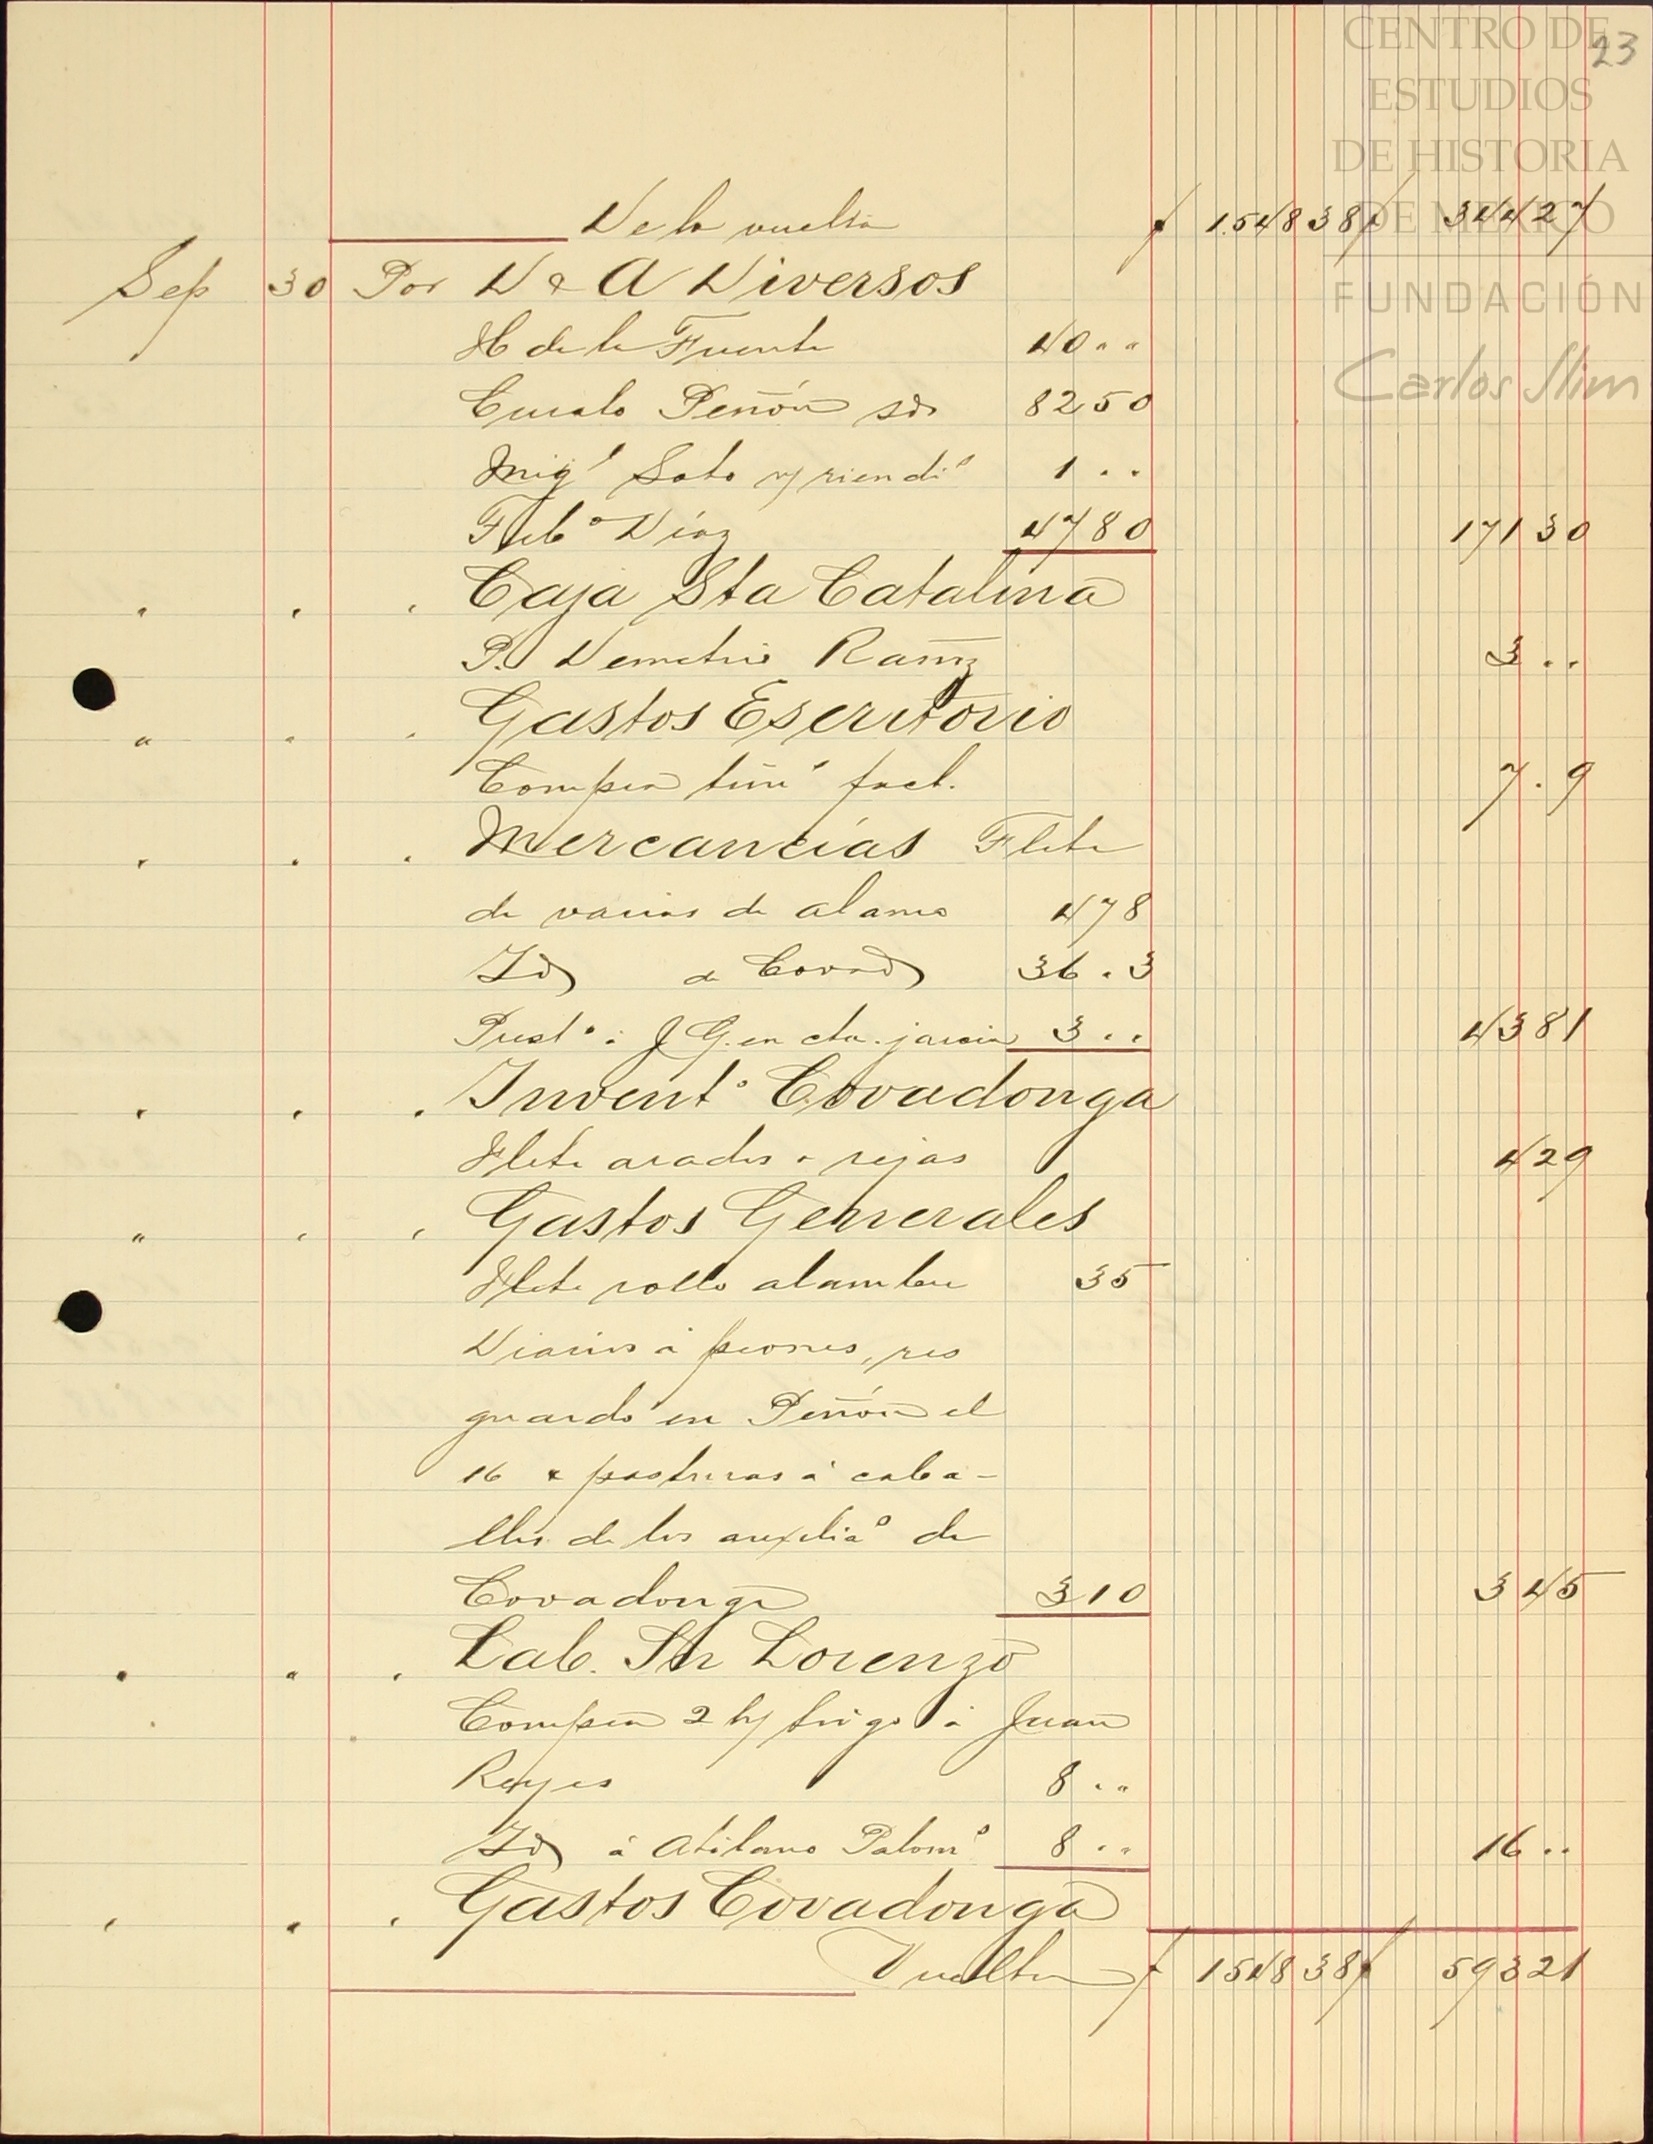 23
CENTRO DE
ESTUDIOS
DE HISTORIA
DE MEXICO
FUNDACIÓN
Carlos Slim
De la vuelta $ 1548 38 $ 344 27
Sep 30 Por D & A Diversos
H de la Fuente 40 " "
Peñón 82 50
Migl Soto 1 " "
Febo Díaz 47 80 171 30
" " " Caja Sta Catalina
P. Demetrio Ramz 3 " "
" " " Gastos Escritorio
Compra fact. 7 . 9
" " " Mercancías Flete
de varios de alamo 4 78
Id de Covad 36 . 3
Prest° á J G. en cta. jarcia 3 " " 43 81
" " " Invent° Covadonga
Flete arados & rejas 4 29
" " " Gastos Generales
Flete rollo alambre 35
Diarios á peones, res
guardo en Peñón el
16 & pasturas á caba-
llos de los auxilia° de
Covadonga 3 10 3 45
" " " Lab. Sn Lorenzo
Compra 2 h/ trigo á Juan
Reyes 8 " "
Id á Atilano Palom° 8 " " 16 " "
" " " Gastos Covadonga
Vuelta $ 1548 38 $ 593 21